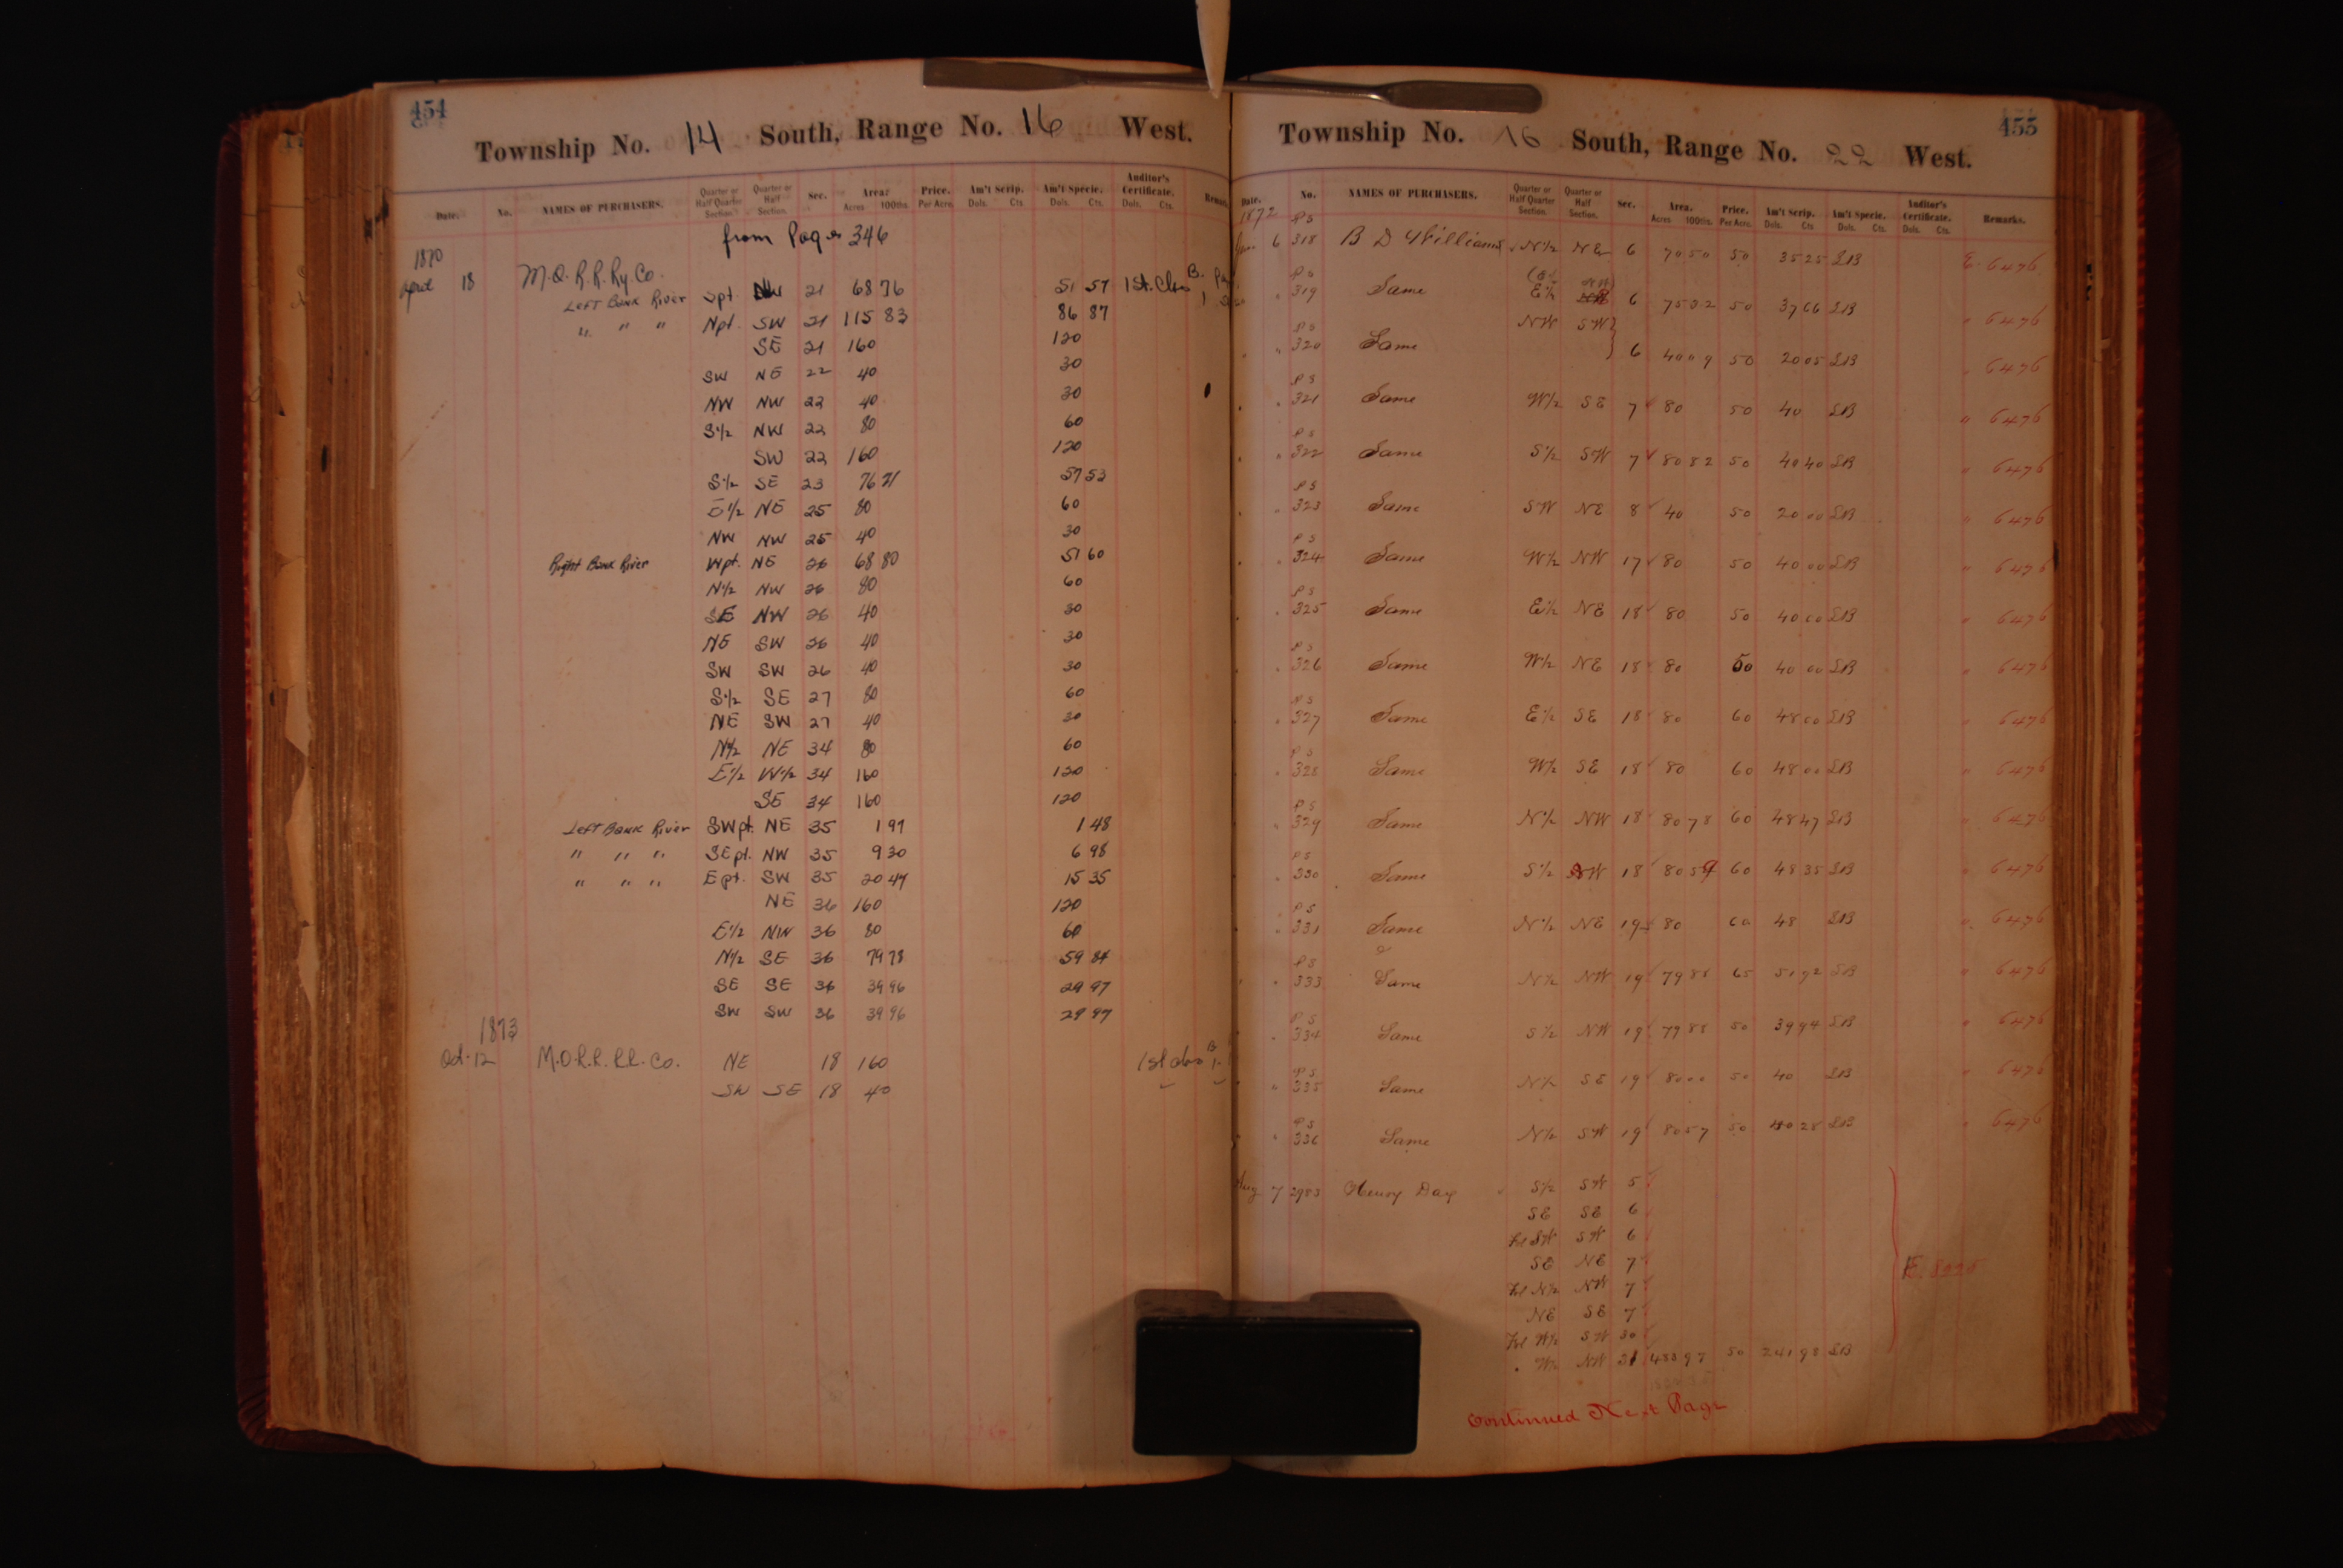 454
Township No. 14 South, Range No. 16 West.
Date. No. NAMES OF PURCHASERS. Quarter or Half Quarter Section. Quarter or Half Section. Sec. Area Acres 100ths. Price. Per Acre. Am't Scrip. Dols. Cts Am't Specie. Dols. Cts. Auditor's Certificate. Dols. Cts.
from Page 346
1870
April 18 M.O.R.R.Ry.Co.
Left Bank River Spt. NW 21 68 76 51 57 1st. Class B.
" " " Npt. SW 21 115 83 86 87
SE 21 160 120
SW NE 22 40 30
NW NW 22 40 30
S1/2 NW 22 80 60
SW 22 160 120
S1/2 SE 23 76 71 57 53
E1/2 NE 25 80 60
NW NW 25 40 30
Right Bank River Wpt. NE 26 68 80 51 60
N1/2 NW 26 80 60
SE NW 26 40 30
NE SW 26 40 30
SW SW 26 40 30
S1/2 SE 27 80 60
NE SW 27 40 30
N1/2 NE 34 80 60
E1/2 W1/2 34 160 120
SE 34 160 120
Left Bank River SWpt. NE 35 1 97 1 48
" " " SEpt. NW 35 9 30 6 98
" " " Ept. SW 35 20 47 15 35
NE 36 160 120
E1/2 NW 36 80 60
N1/2 SE 36 79 78 59 84
SE SE 36 39 96 29 97
SW SW 36 39 96 29 97
1873
Oct. 12 M.O.R.R.R.Co. NE 18 160 1st class B
SW SE 18 40
455
Township No. 16 South, Range No. 22 West.
Date. No. NAMES OF PURCHASERS. Quarter or Half Quarter Section. Quarter or Half Section. Sec. Area. Acres 100ths. Price. Per Acre. Am't Scrip. Dols. Cts Am't Specie. Dols. Cts. Auditor's Certificate. Dols. Cts. Remarks.
1872
Jan. 6 PS 318 B D Williams N1/2 NE 6 70 50 50 35 25 SB E. 6476
" PS 319 Same E1/2 NW 6 75 32 50 37 66 SB " 6476
" PS 320 Same NW SW 6 40 09 50 20 05 SB " 6476
" PS 321 Same W1/2 SE 7 80 50 40 SB " 6476
" PS 322 Same S1/2 SW 7 80 82 50 40 40 SB " 6476
" PS 323 Same SW NE 8 40 50 20 00 SB " 6476
" PS 324 Same W1/2 NW 17 80 50 40 00 SB " 6476
" PS 325 Same E1/2 NE 18 80 50 40 00 SB " 6476
" PS 326 Same W1/2 NE 18 80 50 40 00 SB " 6476
" PS 327 Same E1/2 SE 18 80 60 48 00 SB " 6476
" PS 328 Same W1/2 SE 18 80 60 48 00 SB " 6476
" PS 329 Same N1/2 NW 18 80 78 60 48 47 SB " 6476
" PS 330 Same S1/2 NW 18 80 59 60 48 35 SB " 6476
" PS 331 Same N1/2 NE 19 80 60 48 SB " 6476
" PS 333 Same N1/2 NW 19 79 88 65 51 92 SB " 6476
" PS 334 Same S1/2 NW 19 79 88 50 39 94 SB " 6476
" PS 335 Same N1/2 SE 19 80 00 50 40 SB " 6476
" PS 336 Same N1/2 SW 19 80 57 50 40 28 SB " 6476
Aug 7 2983 Henry Day S1/2 SW 5
SE SE 6
Frl SW SW 6
SE NE 7
Frl N1/2 NW 7
NE SE 7
Frl W1/2 SW 30
" W1/2 NW 31 483 97 50 241 98 SB
Continued Next Page